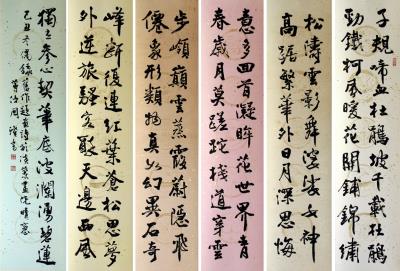 子規啼血杜鵑坡千載杜鵑
勁鐵柯風暖花開鋪錦繡
松濤雲影舞婆娑女神
高踞繁華外日月深思悔
意多回首凝眸花世界青
春歲月莫蹉跎棧道穿雲
步嶺巔雲蒸霞蔚隱飛
僊象形類物真如幻異石奇
峰斷復連紅葉蒼松思夢
外逆旅騷客歇天邊西風
獨立參心契華底波瀾湧碧蓮